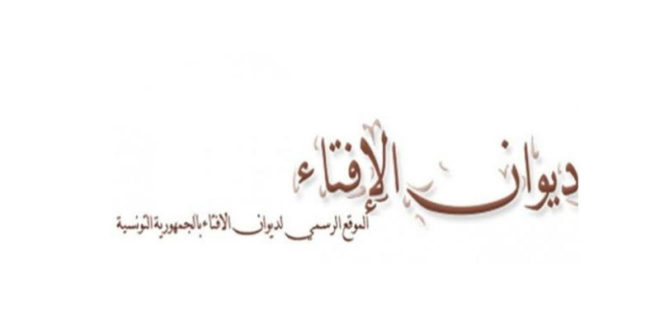 ديوان الإفتاء
الموقع الرسمي لديوان الافتاء بالجمهورية التونسية